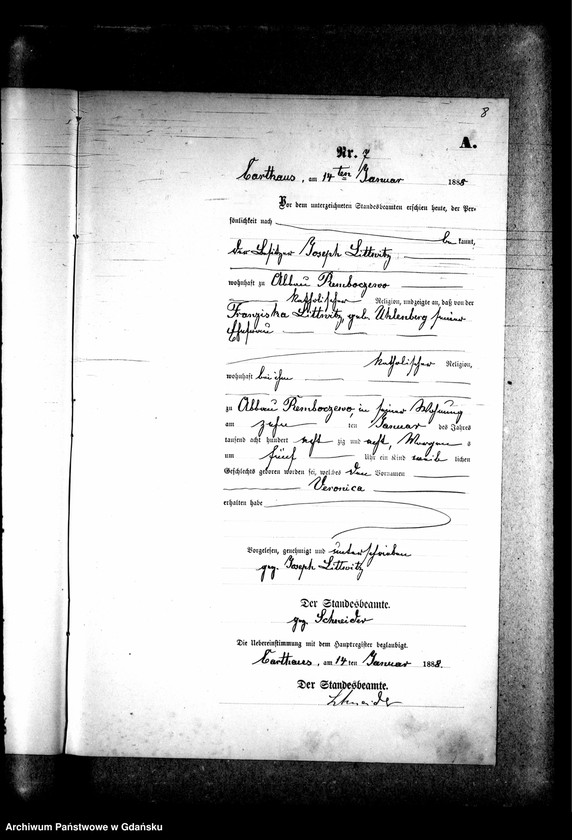 8
A.
Nr. 7
Carthaus, am 14ten Januar 1888
Vor dem unterzeichneten Standesbeamten erschien heute, der Per-
sönlichkeit nach
be kannt,
der Besitzer Joseph Littwitz
wohnhaft zu Abbau Remboczewo
katholischer Religion, und zeigte an, daß von der
Franziska Littwitz, geb. Uhlenberg seiner
Ehefrau
katholischer Religion,
wohnhaft bei ihm
zu Abbau Remboczewo, in seiner Wohnung
am zehn ten Januar des Jahres
tausend acht hundert acht zig und acht, Morgen s
um fünf Uhr ein Kind weib lichen
Geschlechts geboren worden sei, welches den Vornamen
Veronica
erhalten habe
Vorgelesen, genehmigt und unterschrieben
gez. Joseph Littwitz
Der Standesbeamte.
gez. Schneider
Die Uebereinstimmung mit dem Hauptregister beglaubigt.
Carthaus, am 14 ten Januar 1888.
Der Standesbeamte.
Schneider
Archiwum Państwowe w Gdańsku